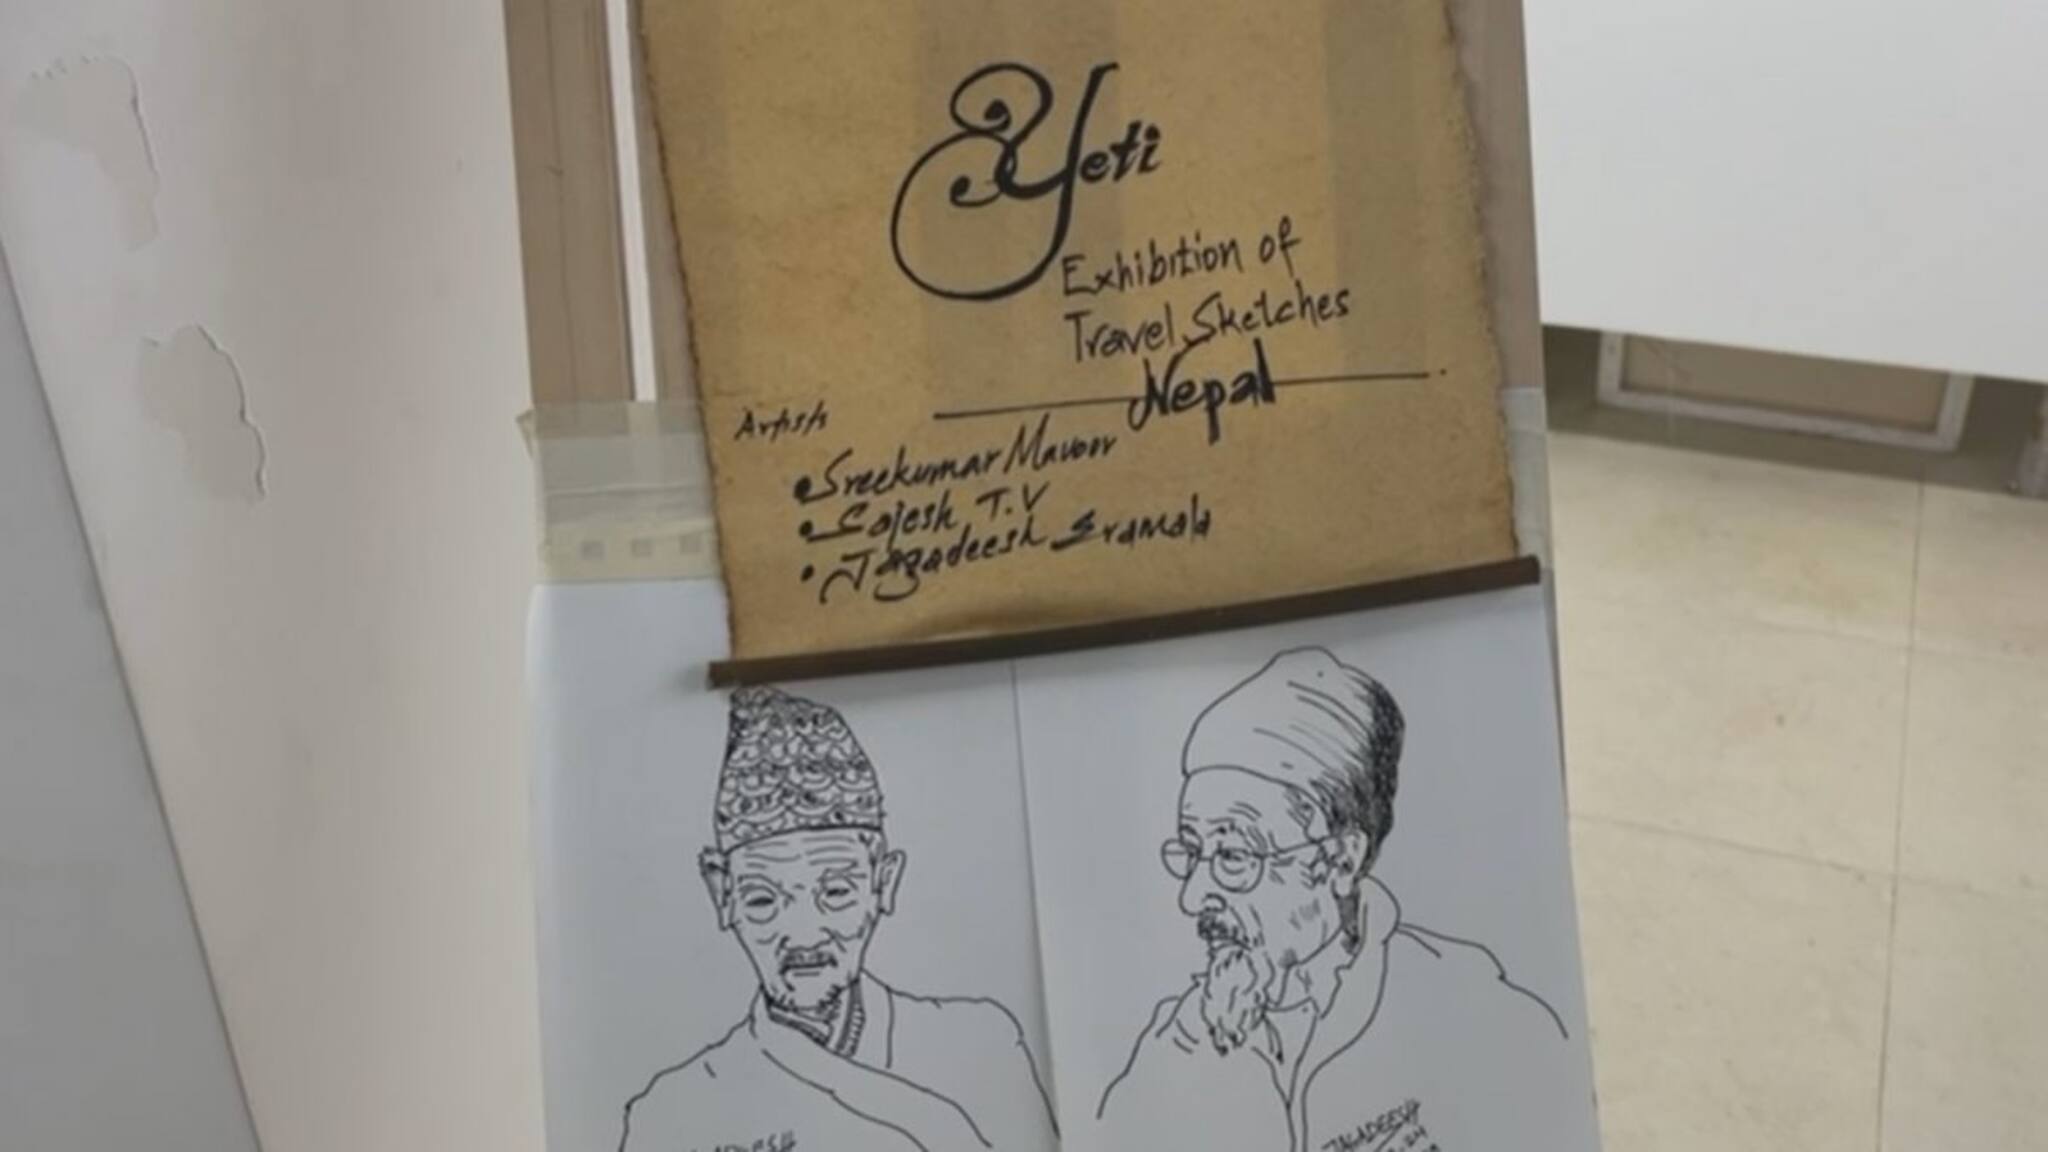 Yeti
Exhibition of
Travel Sketches
Nepal
Artists
• Sreekumar Mavoor
• Sajesh T.V
• Jagadeesh Eramala
JAGADEESH